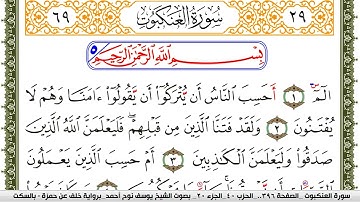 ٢٩ سُورَةُ العَنكَبُوتِ ٦٩
بِسْمِ ٱللَّهِ ٱلرَّحْمَٰنِ ٱلرَّحِيمِ
الٓمٓ ١ أَحَسِبَ ٱلنَّاسُ أَن يُتْرَكُوٓا۟ أَن يَقُولُوٓا۟ ءَامَنَّا وَهُمْ لَا
يُفْتَنُونَ ٢ وَلَقَدْ فَتَنَّا ٱلَّذِينَ مِن قَبْلِهِمْ ۖ فَلَيَعْلَمَنَّ ٱللَّهُ ٱلَّذِينَ
صَدَقُوا۟ وَلَيَعْلَمَنَّ ٱلْكَٰذِبِينَ ٣ أَمْ حَسِبَ ٱلَّذِينَ يَعْمَلُونَ
سورة العنكبوت _ الصفحة ٣٩٦ _ الحزب ٤٠ _ الجزء ٢٠ _ بصوت الشيخ يوسف نوح أحمد _ برواية خلف عن حمزة - بالسكت